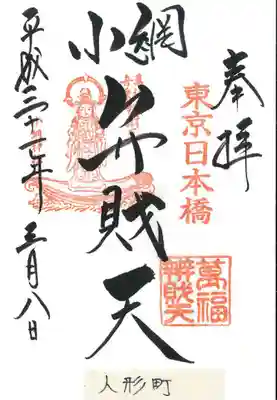 奉拝
東京日本橋
萬福
辨財天
小網
弁財天
平成二十一年三月八日
人形町